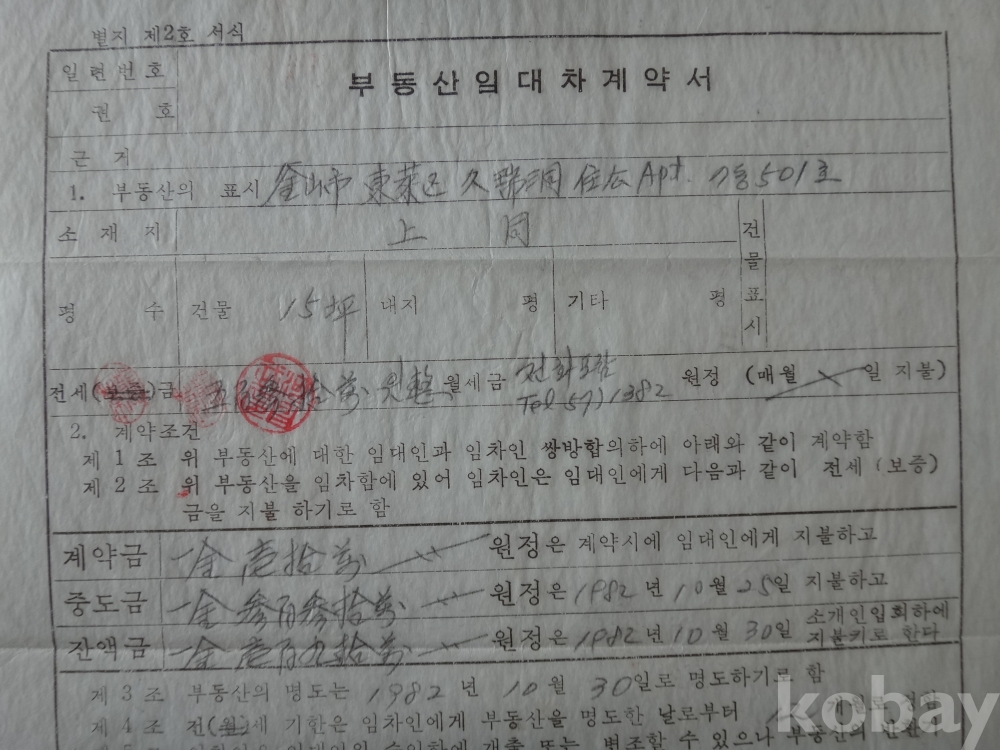 별지 제2호 서식
일련번호
부동산임대차계약서
권 호
근 거
1. 부동산의 표시 釜山市 東萊區 久瑞洞 住公 Apt. 가동 501호
소 재 지 上 同
건물표시
평 수 건물 15坪 대지 평 기타 평
전세(보증)금 五百參拾萬 원整 월세금 전화포함 Tel 57)1382 원정 (매월 일 지불)
2. 계약조건
제 1 조 위 부동산에 대한 임대인과 임차인 쌍방합의하에 아래와 같이 계약함
제 2 조 위 부동산을 임차함에 있어 임차인은 임대인에게 다음과 같이 전세 (보증)
금을 지불 하기로 함
계약금 一金 壹拾萬 원정은 계약시에 임대인에게 지불하고
중도금 一金 參百參拾萬 원정은 1982년 10월 25일 지불하고
잔액금 一金 壹百九拾萬 원정은 1982년 10월 30일 소개인입회하에 지불키로 한다
제 3 조 부동산의 명도는 1982년 10월 30일로 명도하기로 함
제 4 조 전(월)세 기한은 임차인에게 부동산을 명도한 날로부터
kobay